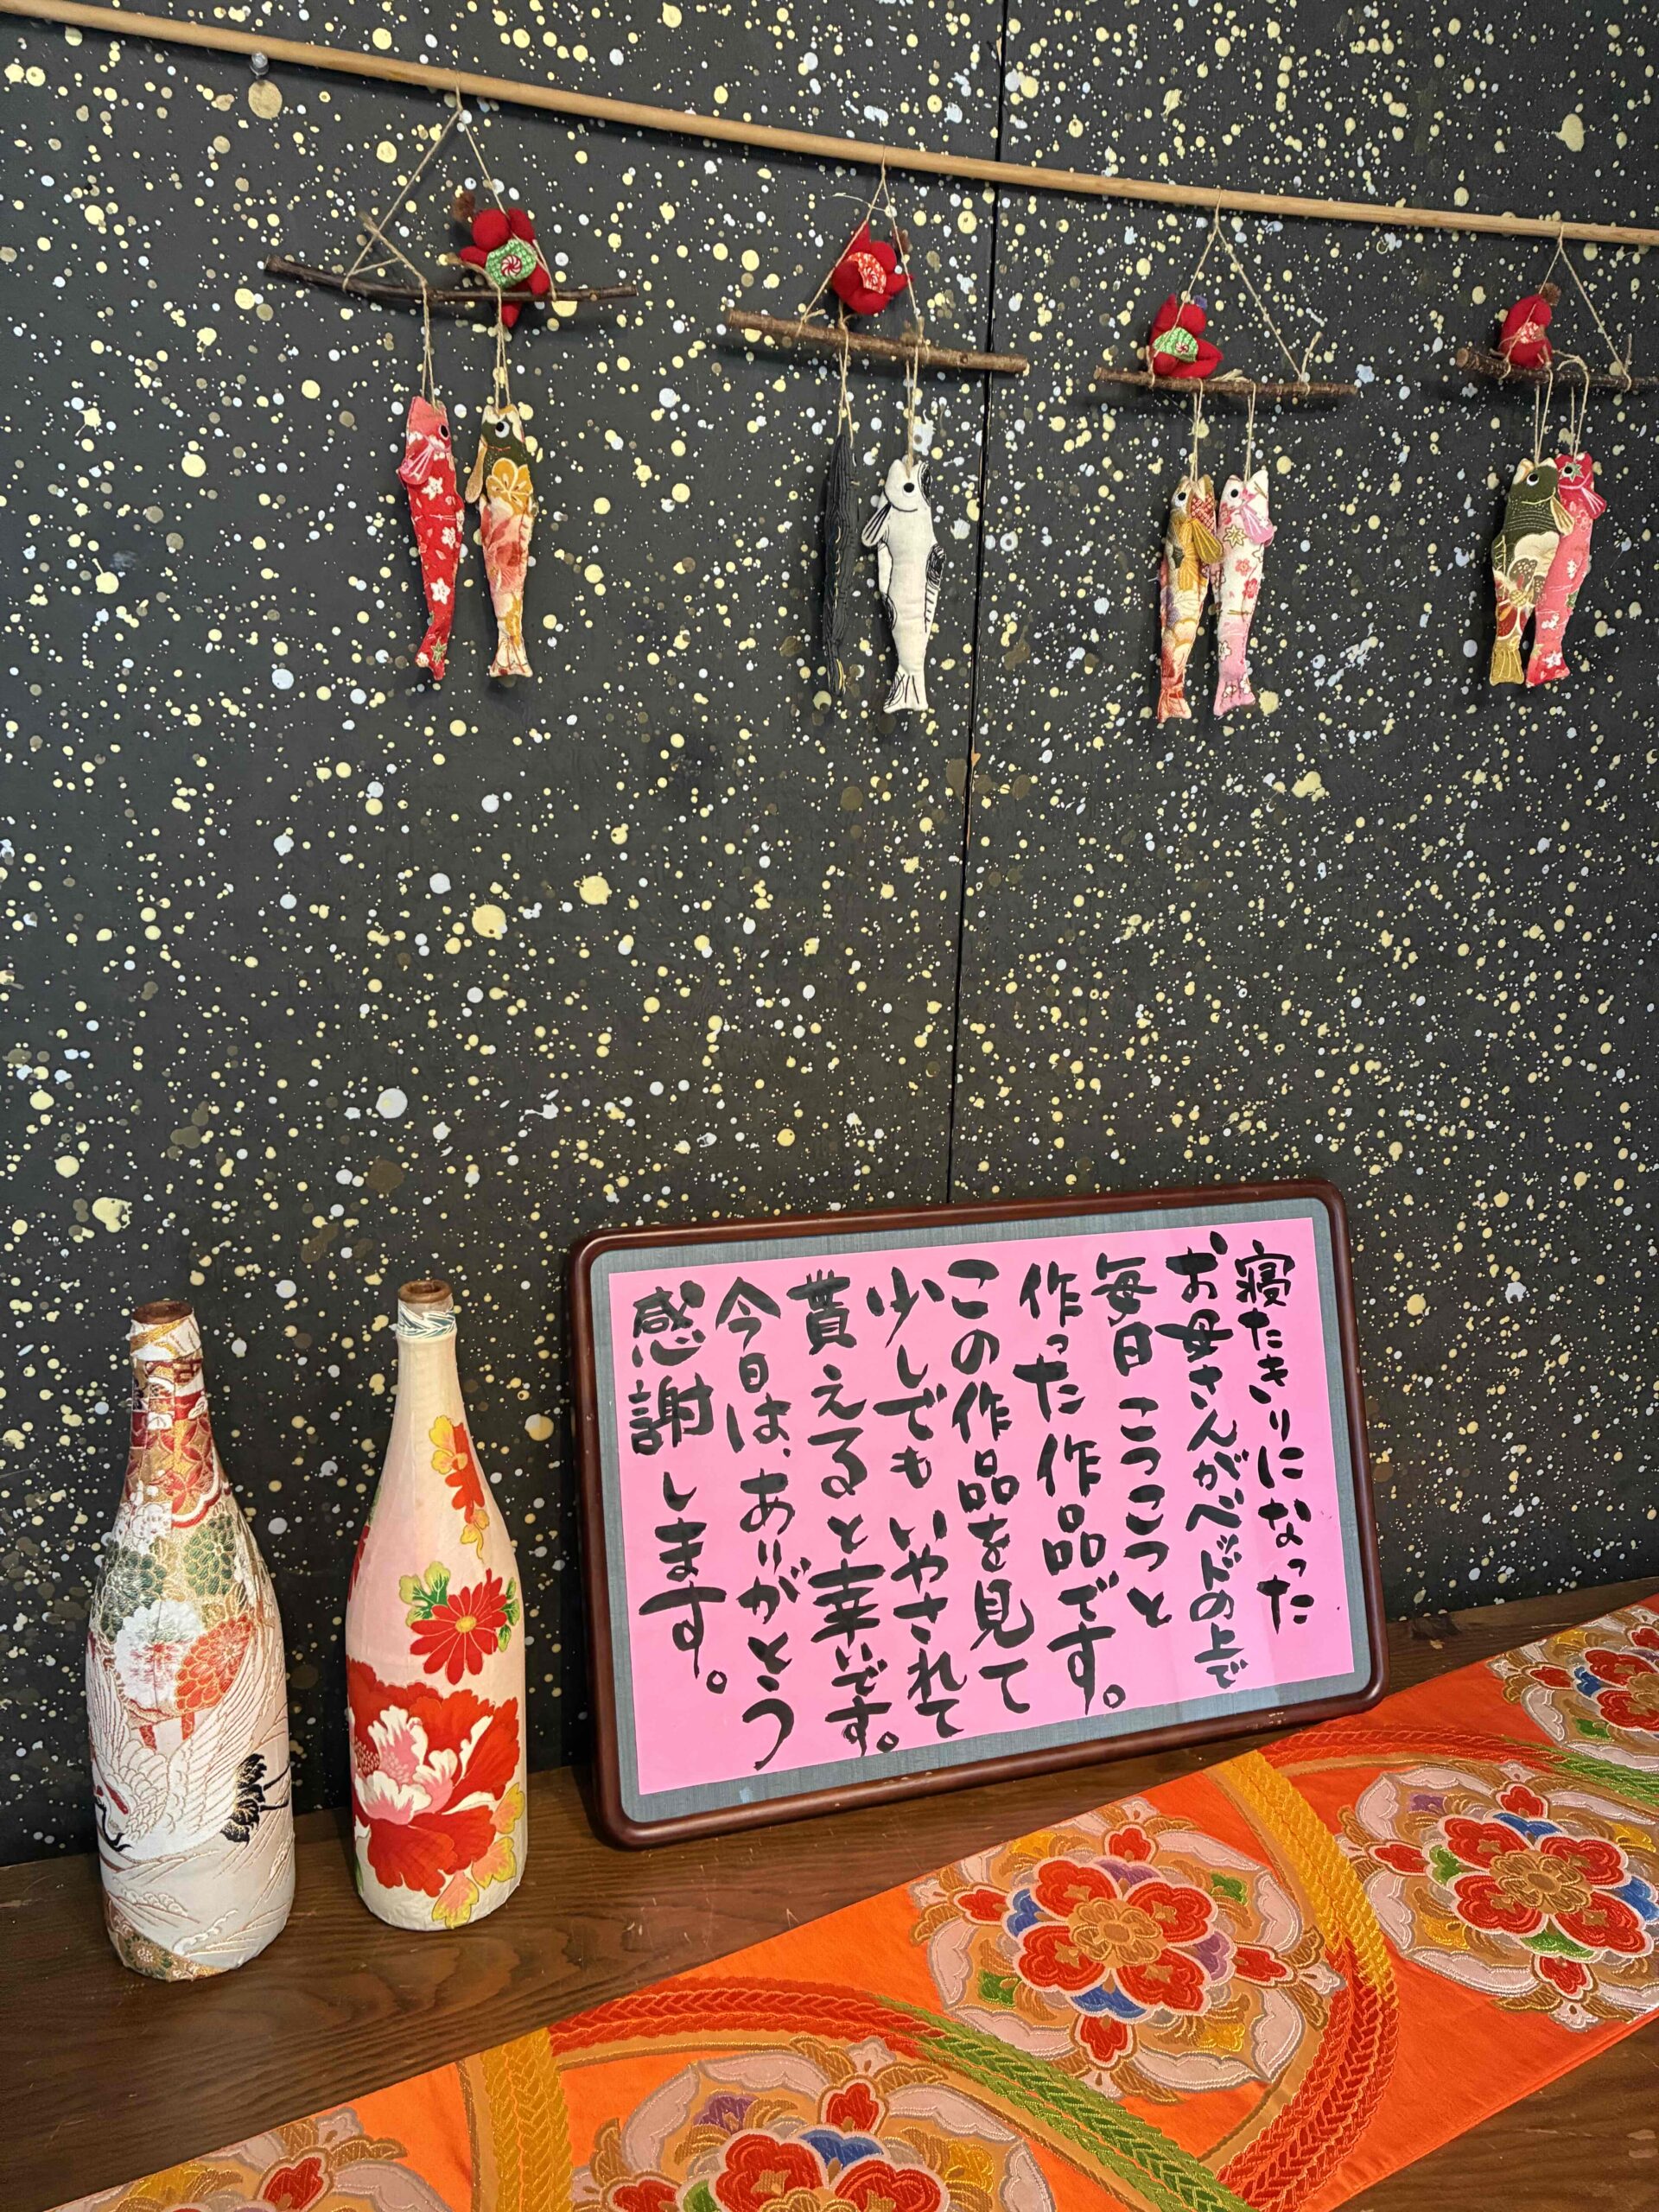 寝たきりになった
お母さんがベッドの上で
毎日こつこつと
作った作品です。
この作品を見て
少しでもいやされて
貰えると幸いです。
今日は、ありがとう
感謝します。